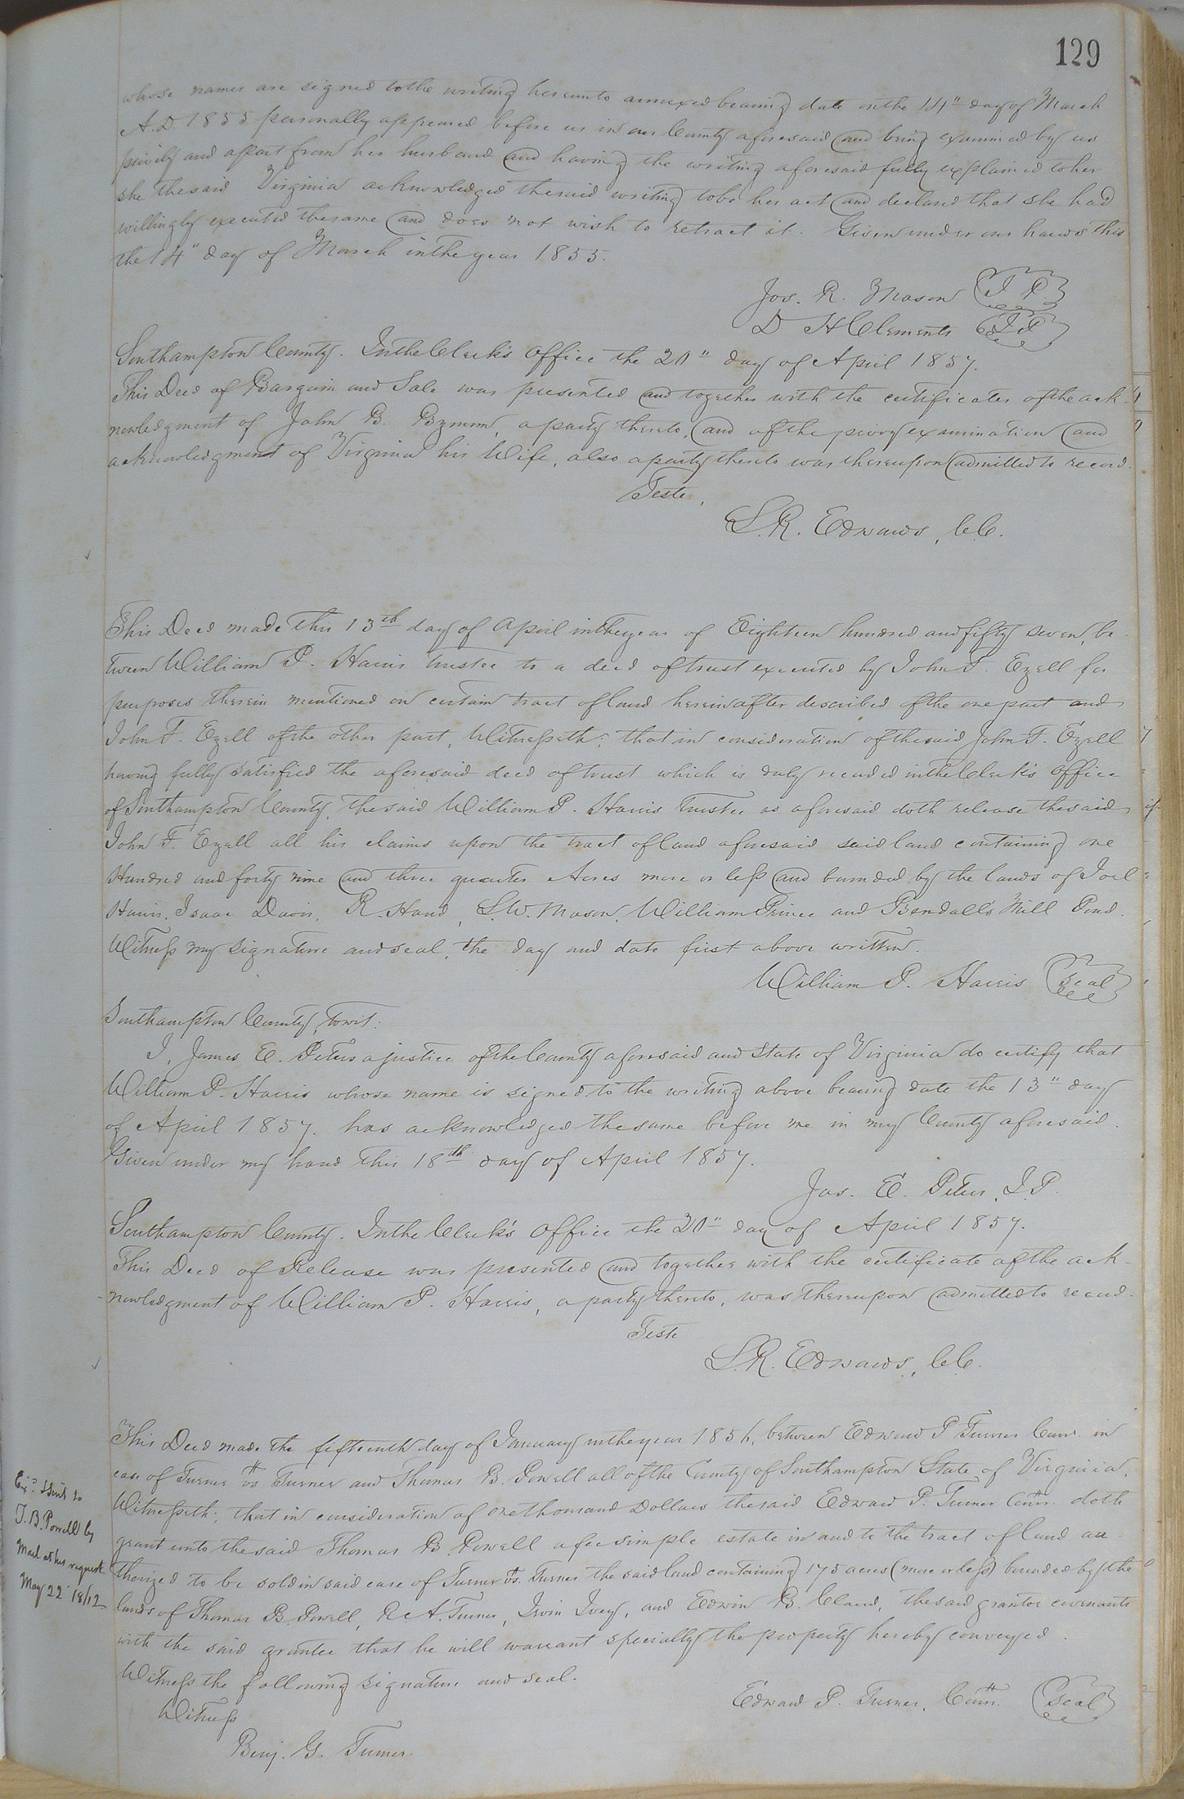 129
whose names are signed to the writing hereunto annexed bearing date on the 14" day of March
A.D. 1855 personally appeared before us in our County aforesaid and being examined by us
privily and apart from her husband and having the writing aforesaid fully explained to her
she the said Virginia acknowledged the said writing to be her act and declared that she had
willingly executed the same and does not wish to retract it. Given under our hands this
the 14" day of March in the year 1855.
Jos. R. Mason J P
D H Clements J P
Southampton County. In the Clerk's Office the 20" day of April 1857.
This Deed of Bargain and Sale was presented and together with the certificates of the ack-
nowledgment of John B. a party thereto, and of the privy examination and
acknowledgment of Virginia his Wife, also a party thereto was thereupon admitted to record.
Teste,
L.R. Edwards, C.C.
This Deed made this 13th day of April in the year of Eighteen hundred and fifty seven, be-
tween William P. Harris trustee to a deed of trust executed by John F. Ezell for
purposes therein mentioned on certain tract of land hereinafter described of the one part and
John F. Ezell of the other part, Witnesseth: that in consideration of the said John F. Ezell
having fully satisfied the aforesaid deed of trust which is duly recorded in the Clerk's Office
of Southampton County, the said William P. Harris Trustee as aforesaid doth release the said
John F. Ezell all his claims upon the tract of land aforesaid said land containing one
Hundred and forty nine and three quarter Acres more or less and bounded by the lands of Joel
Harris, Isaac Davis, R. Hand, L.W. Mason, William Prince and Bendall's Mill Pond.
Witness my signature and seal, the day and date first above written.
William P. Harris Seal
Southampton County, towit:
I, James E. Peters a justice of the County aforesaid and State of Virginia do certify that
William P. Harris whose name is signed to the writing above bearing date the 13" day
of April 1857. has acknowledged the same before me in my County aforesaid.
Given under my hand this 18th day of April 1857.
Jas. E. Peters, J.P.
Southampton County. In the Clerk's Office the 20" day of April 1857.
This Deed of Release was presented and together with the certificate of the ack-
nowledgment of William P. Harris, a party thereto, was thereupon admitted to record.
Teste
L.R. Edwards, C.C.
This Deed made the fifteenth day of January in the year 1856, between Edward P Turner Comr. in
case of Turner vs Turner and Thomas B. Powell all of the County of Southampton State of Virginia.
Witnesseth: that in consideration of one thousand Dollars the said Edward P. Turner Comr. doth
grant unto the said Thomas B. Powell a fee simple estate in and to the tract of land au-
thorized to be sold in said case of Turner vs. Turner the said land containing 175 acres (more or less) bounded by the
lands of Thomas B. Powell, R. A. Turner, Irvin Ivey, and Edwin B. Claud, the said grantor covenants
with the said grantee that he will warrant specially the property hereby conveyed.
Witness the following signature and seal.
Witness
Edward P. Turner, Comr. Seal
Benj. G. Turner
Sent to
T. B. Powell by
Mail at his request
May 22